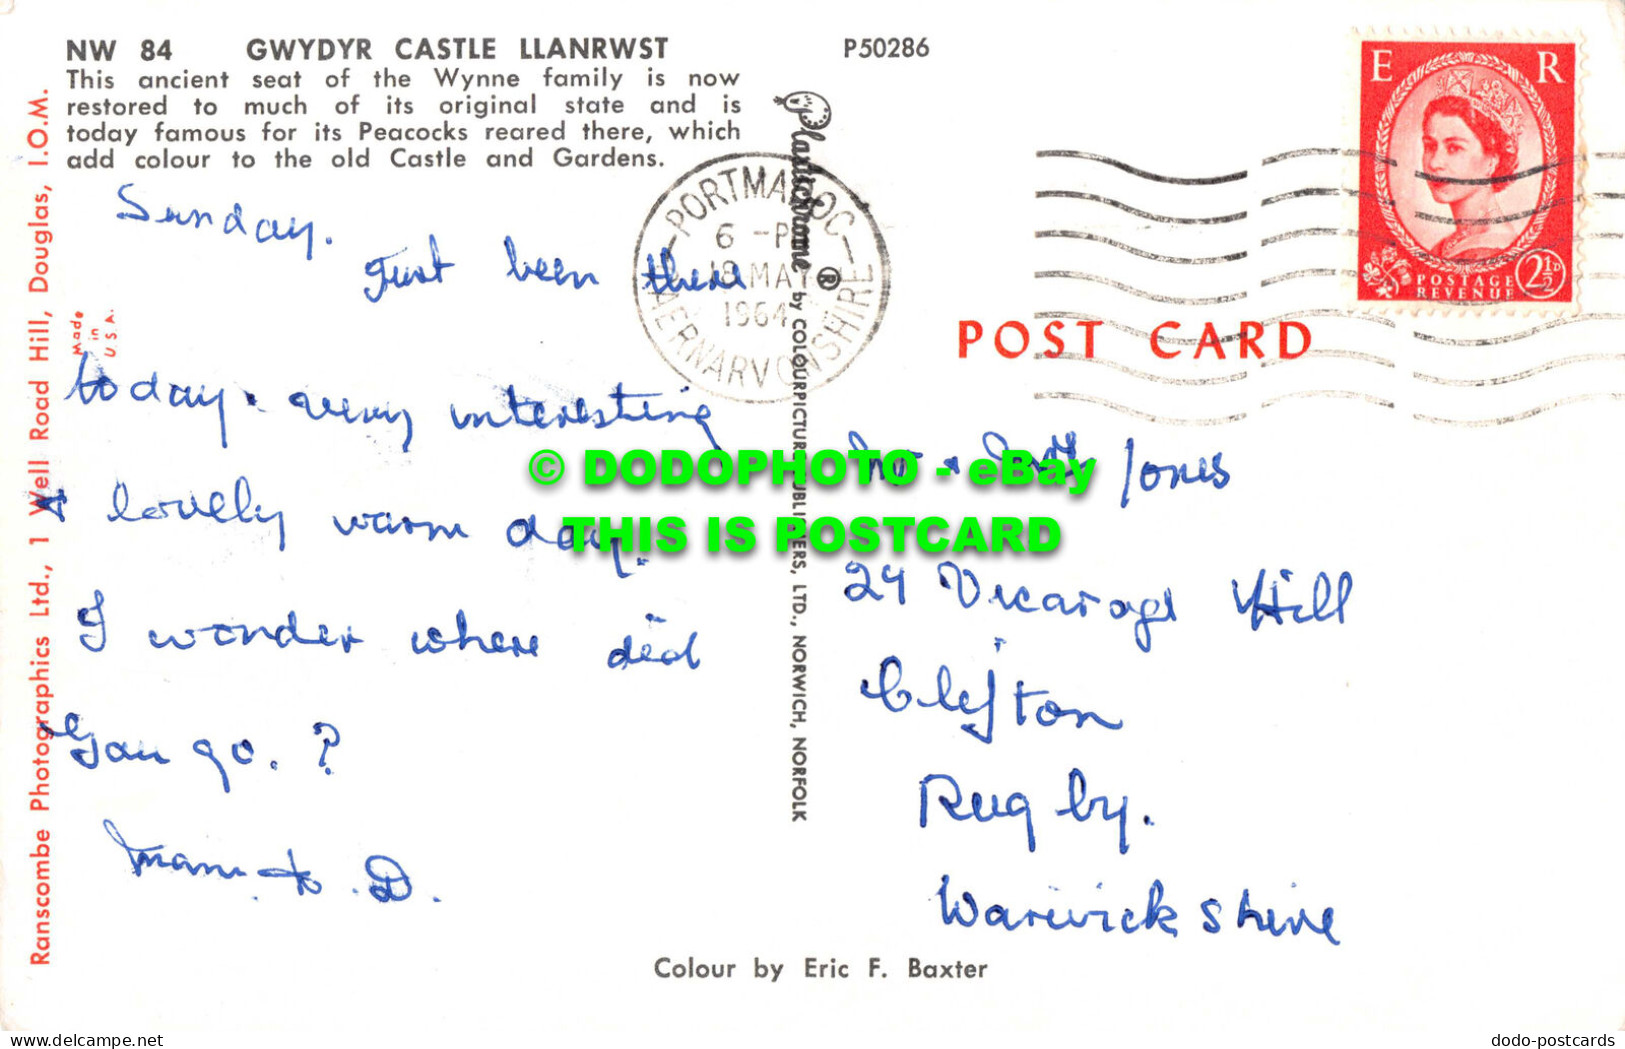 NW 84 GWYDYR CASTLE LLANRWST
This ancient seat of the Wynne family is now
restored to much of its original state and is
today famous for its Peacocks reared there, which
add colour to the old Castle and Gardens.
P50286
Sunday.
Just been there
today. very interesting
& lovely warm day.
I wonder where did
you go. ?
Mam & D.
Ranscombe Photographics Ltd., 1 Well Road Hill, Douglas, I.O.M.
Made
in
U.S.A.
Plastichrome ® by COLOURPICTURE PUBLISHERS, LTD., NORWICH, NORFOLK
PORTMADOC
6 -P
18 MAY
1964
CAERNARVONSHIRE
E R
POSTAGE
REVENUE
2½D
POST CARD
Mr & Mrs Jones
24 Vicarage Hill
Clifton
Rugby.
Warwickshire
Colour by Eric F. Baxter
© DODOPHOTO - eBay
THIS IS POSTCARD
www.delcampe.net
dodo-postcards